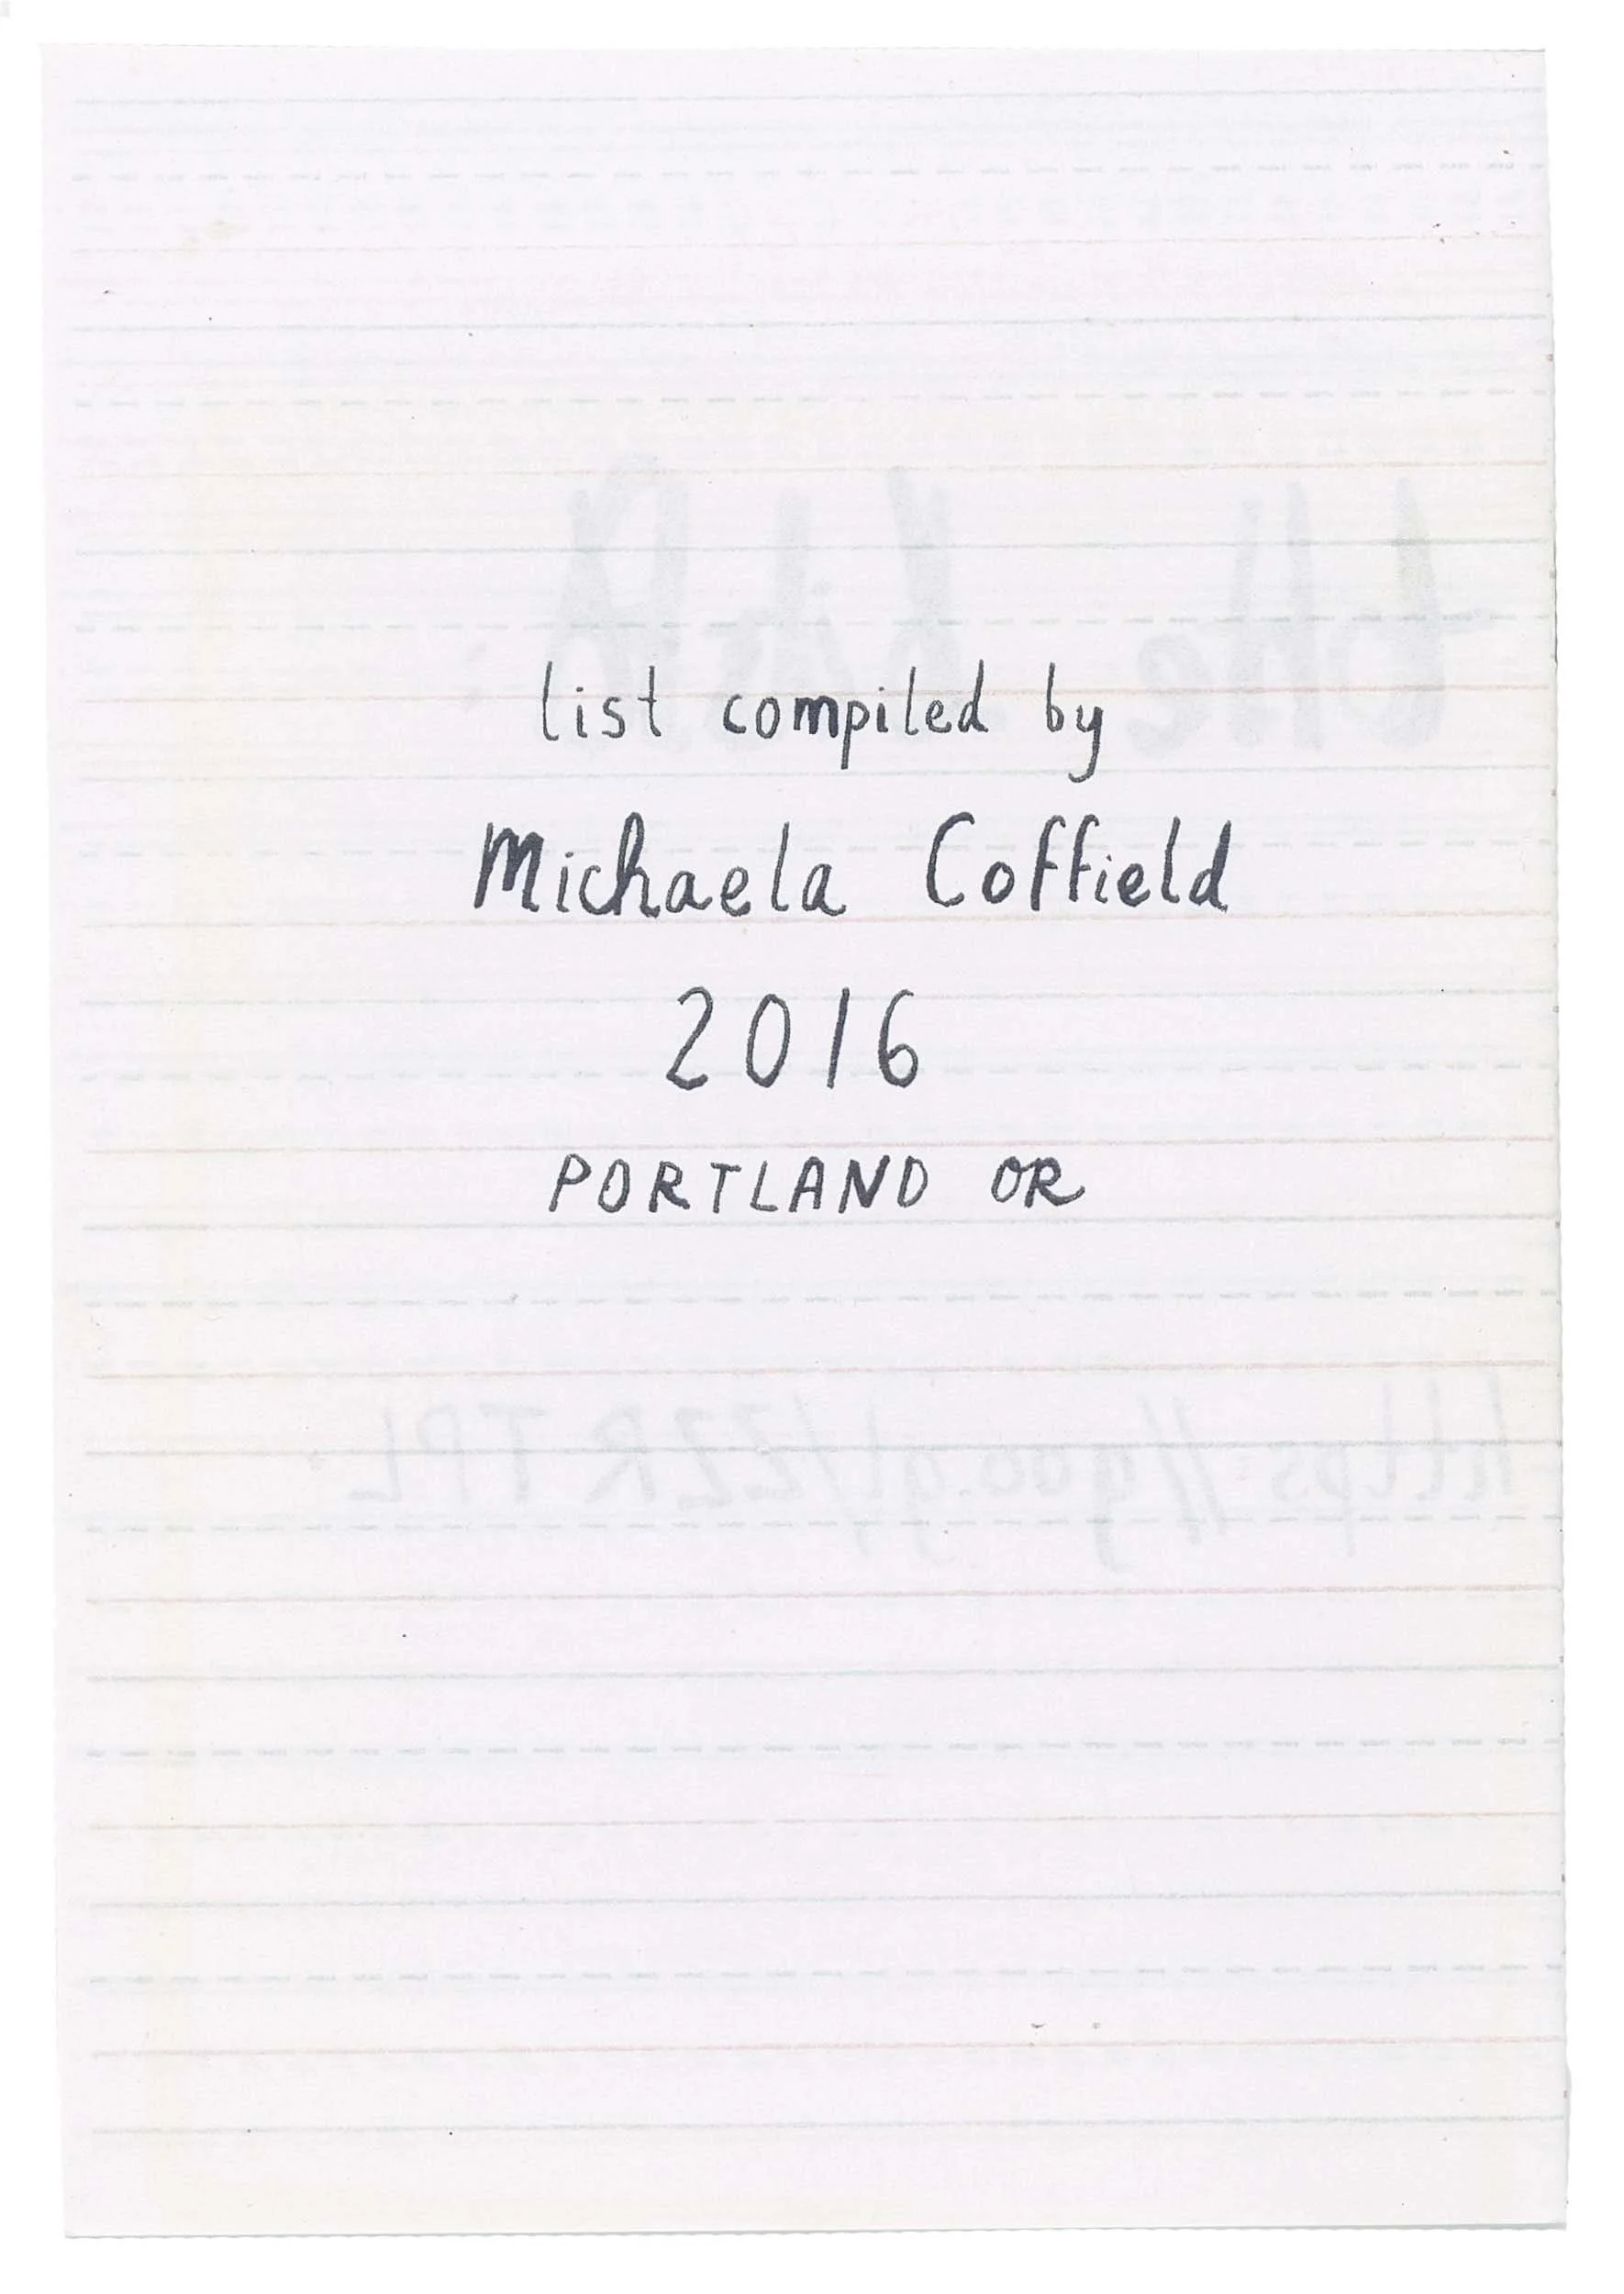 list compiled by
Michaela Coffield
2016
PORTLAND OR